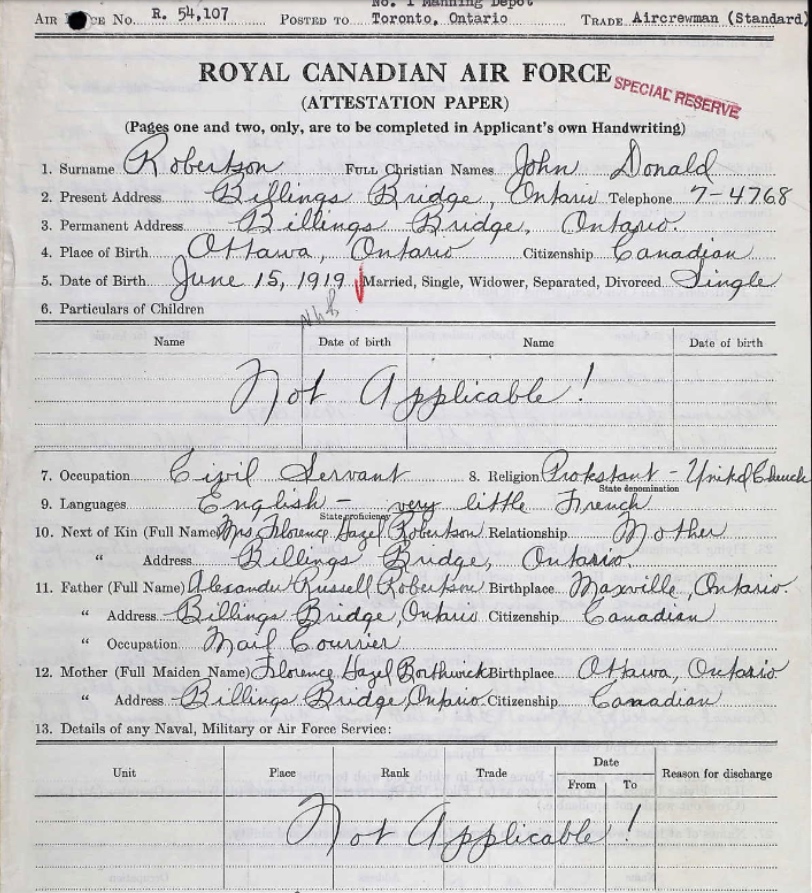 No. 1 Manning Depot
AIR FORCE No. R. 54,107 POSTED TO Toronto, Ontario TRADE Aircrewman (Standard)
ROYAL CANADIAN AIR FORCE
SPECIAL RESERVE
(ATTESTATION PAPER)
(Pages one and two, only, are to be completed in Applicant's own Handwriting)
1. Surname Robertson FULL Christian Names John Donald
2. Present Address Billings Bridge, Ontario Telephone 7-4768
3. Permanent Address Billings Bridge, Ontario.
4. Place of Birth Ottawa, Ontario Citizenship Canadian
5. Date of Birth June 15, 1919 Married, Single, Widower, Separated, Divorced Single
6. Particulars of Children
Name Date of birth Name Date of birth
Not Applicable!
7. Occupation Civil Servant 8. Religion Protestant - United Church
State denomination
9. Languages English - very little French
State proficiency
10. Next of Kin (Full Name) Mrs. Florence Hazel Robertson Relationship Mother
" Address Billings Bridge, Ontario.
11. Father (Full Name) Alexander Russell Robertson Birthplace Maxville, Ontario.
" Address Billings Bridge, Ontario Citizenship Canadian
" Occupation Mail Courrier
12. Mother (Full Maiden Name) Florence Hazel Borthwick Birthplace Ottawa, Ontario
" Address Billings Bridge, Ontario. Citizenship Canadian
13. Details of any Naval, Military or Air Force Service:
Unit Place Rank Trade Date Reason for discharge
From To
Not Applicable!